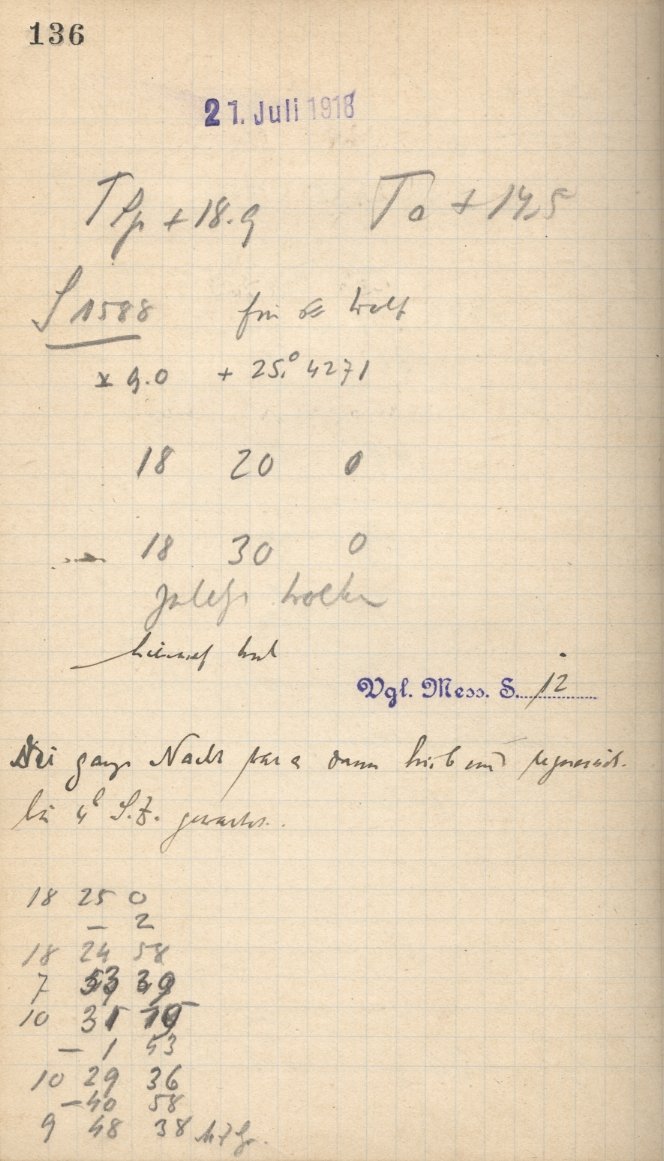 136
21. Juli 1918
T + 18.9 Ta + 14,5
S 1588 für Wolf
* 9.0 + 25,°4271
18 20 0
18 30 0
Wolken
Vgl. Mess. S. 12
Die ganze Nacht war es dann trüb und
bis 4h S.Z. gewartet.
18 25 0
– 2
18 24 58
7 53 39
10 31 19
– 1 43
10 29 36
– 40 58
9 48 38